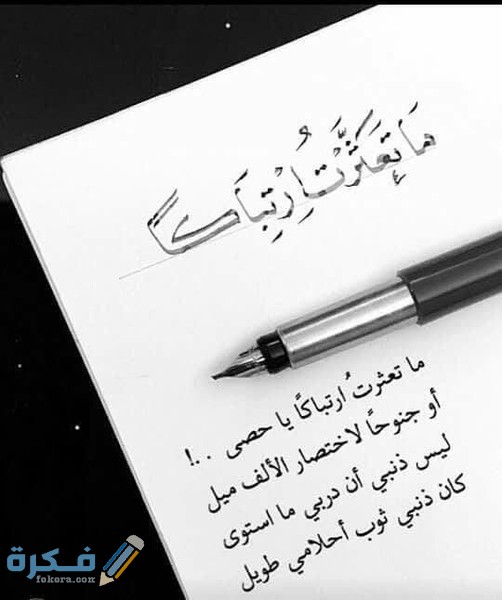 مَا تَعَثَّرْتُ اِرْتِبَاكًا
ما تعثرتُ ارتباكًا يا حصى . . !
أو جنوحاً لاختصار الألف ميل
ليس ذنبي أن دربي ما استوى
كان ذنبي ثوب أحلامي طويل
فكرة
fokora.com